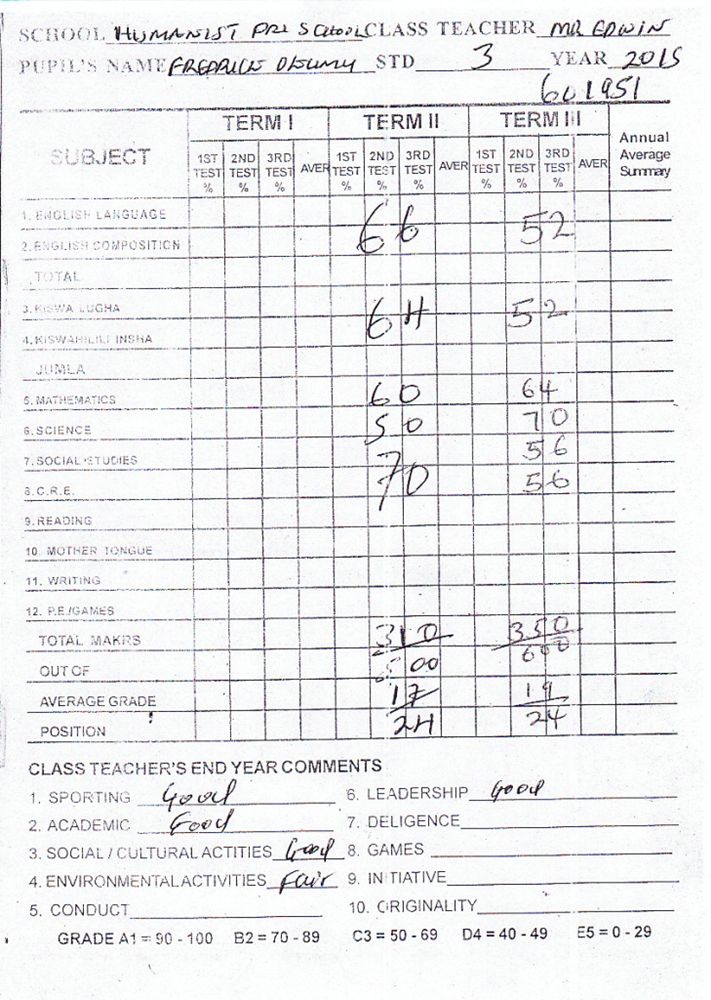 SCHOOL HUMANIST PRI SCHOOL CLASS TEACHER MR EDWIN
PUPIL'S NAME FREDRICK STD 3 YEAR 2015
601951
SUBJECT TERM I TERM II TERM III Annual Average Summary
1ST TEST % 2ND TEST % 3RD TEST % AVER 1ST TEST % 2ND TEST % 3RD TEST % AVER 1ST TEST % 2ND TEST % 3RD TEST % AVER
1. ENGLISH LANGUAGE 66 52
2. ENGLISH COMPOSITION
TOTAL
3. KISWA LUGHA 64 52
4. KISWAHILILI INSHA
JUMLA
5. MATHEMATICS 60 64
6. SCIENCE 50 70
7. SOCIAL STUDIES 70 56
8. C.R.E. 56
9. READING
10. MOTHER TONGUE
11. WRITING
12. P.E./GAMES
TOTAL MAKRS 310 350
OUT OF 500 600
AVERAGE GRADE 17 19
POSITION 24 24
CLASS TEACHER'S END YEAR COMMENTS
1. SPORTING Good 6. LEADERSHIP Good
2. ACADEMIC Good 7. DELIGENCE
3. SOCIAL / CULTURAL ACTITIES Good 8. GAMES
4. ENVIRONMENTAL ACTIVITIES Fair 9. INITIATIVE
5. CONDUCT 10. ORIGINALITY
GRADE A1 = 90 - 100 B2 = 70 - 89 C3 = 50 - 69 D4 = 40 - 49 E5 = 0 - 29